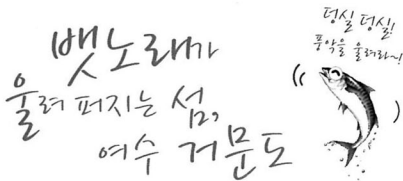 뱃노래가
울려 퍼지는 섬,
여수 거문도
덩실 덩실!
풍악을 울려라~!